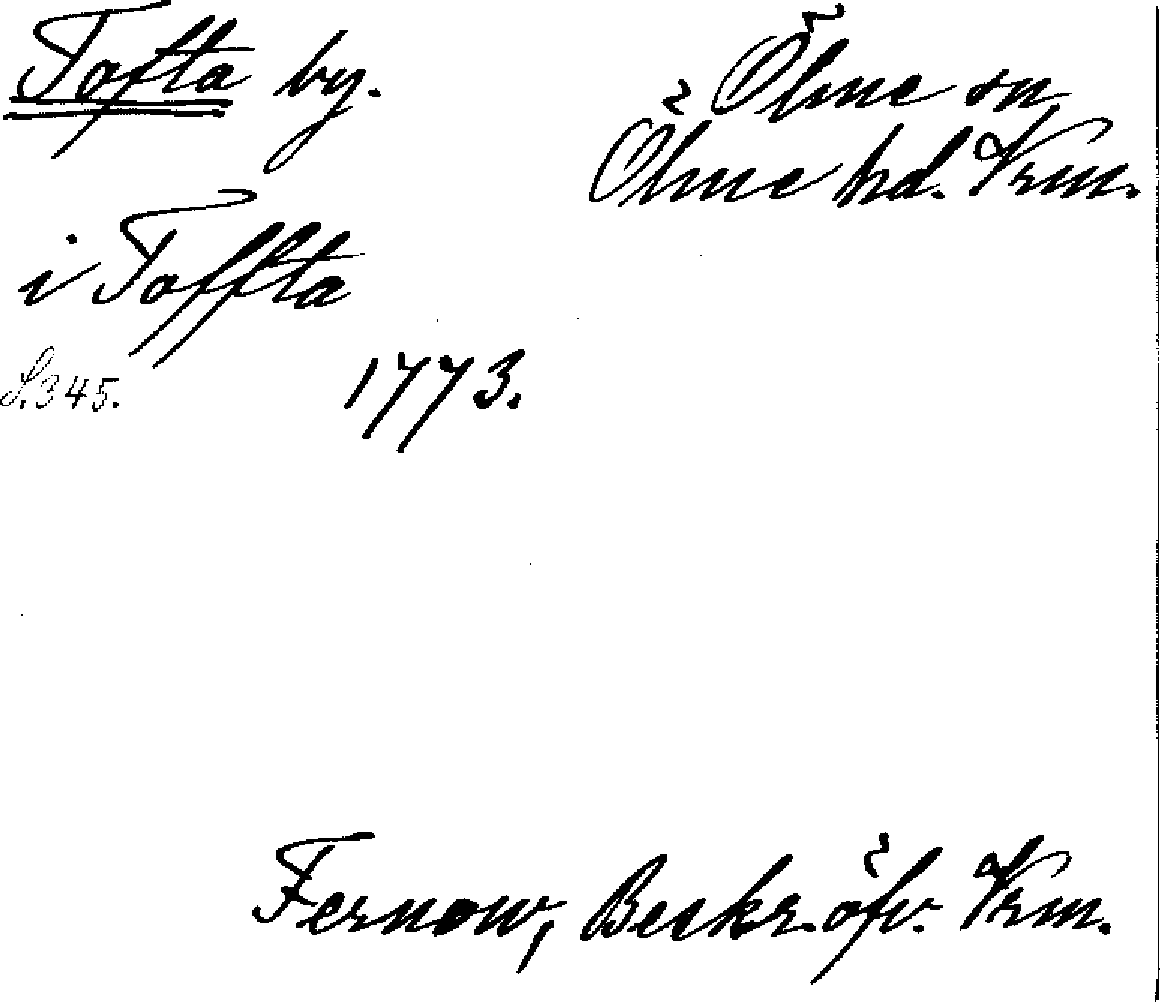 Tofta by.
Ölme sn
Ölme hd. Vrm.
i Toffta
S. 345.
1773.
Fernow, Beskr. öfv. Vrm.